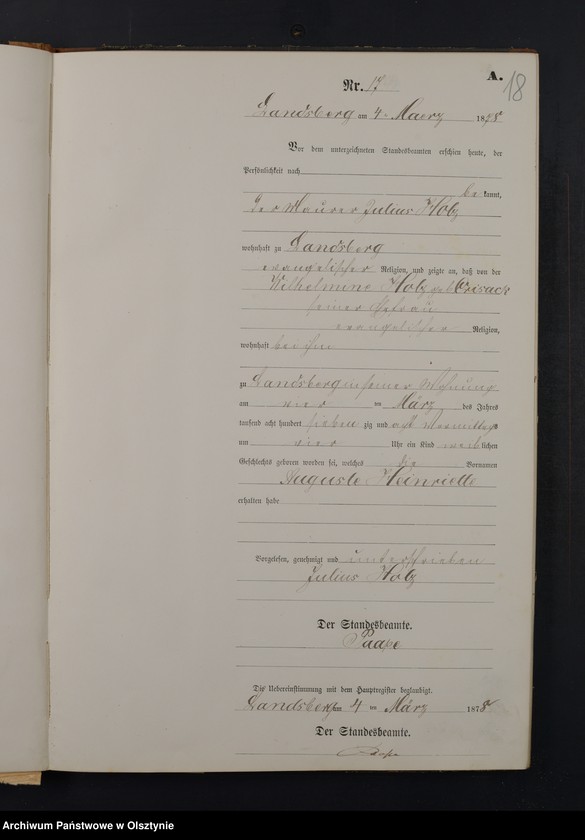 A.
18
Nr. 17
Landsberg am 4. Maerz 1878
Vor dem unterzeichneten Standesbeamten erschien heute, der
Persönlichkeit nach
bekannt,
der Maurer Julius Holz
wohnhaft zu Landsberg
evangelischer Religion, und zeigte an, daß von der
Wilhelmine Holz geb.
seiner Ehefrau
evangelischer Religion,
wohnhaft bei ihm
zu Landsberg in seiner Wohnung
am vier ten März des Jahres
tausend acht hundert sieben zig und acht Vormittags
um vier Uhr ein Kind weiblichen
Geschlechts geboren worden sei, welches die Vornamen
Auguste Henriette
erhalten habe
Vorgelesen, genehmigt und unterschrieben
Julius Holz
Der Standesbeamte.
Paape
Die Uebereinstimmung mit dem Hauptregister beglaubigt.
Landsberg am 4 ten März 1878
Der Standesbeamte.
Archiwum Państwowe w Olsztynie